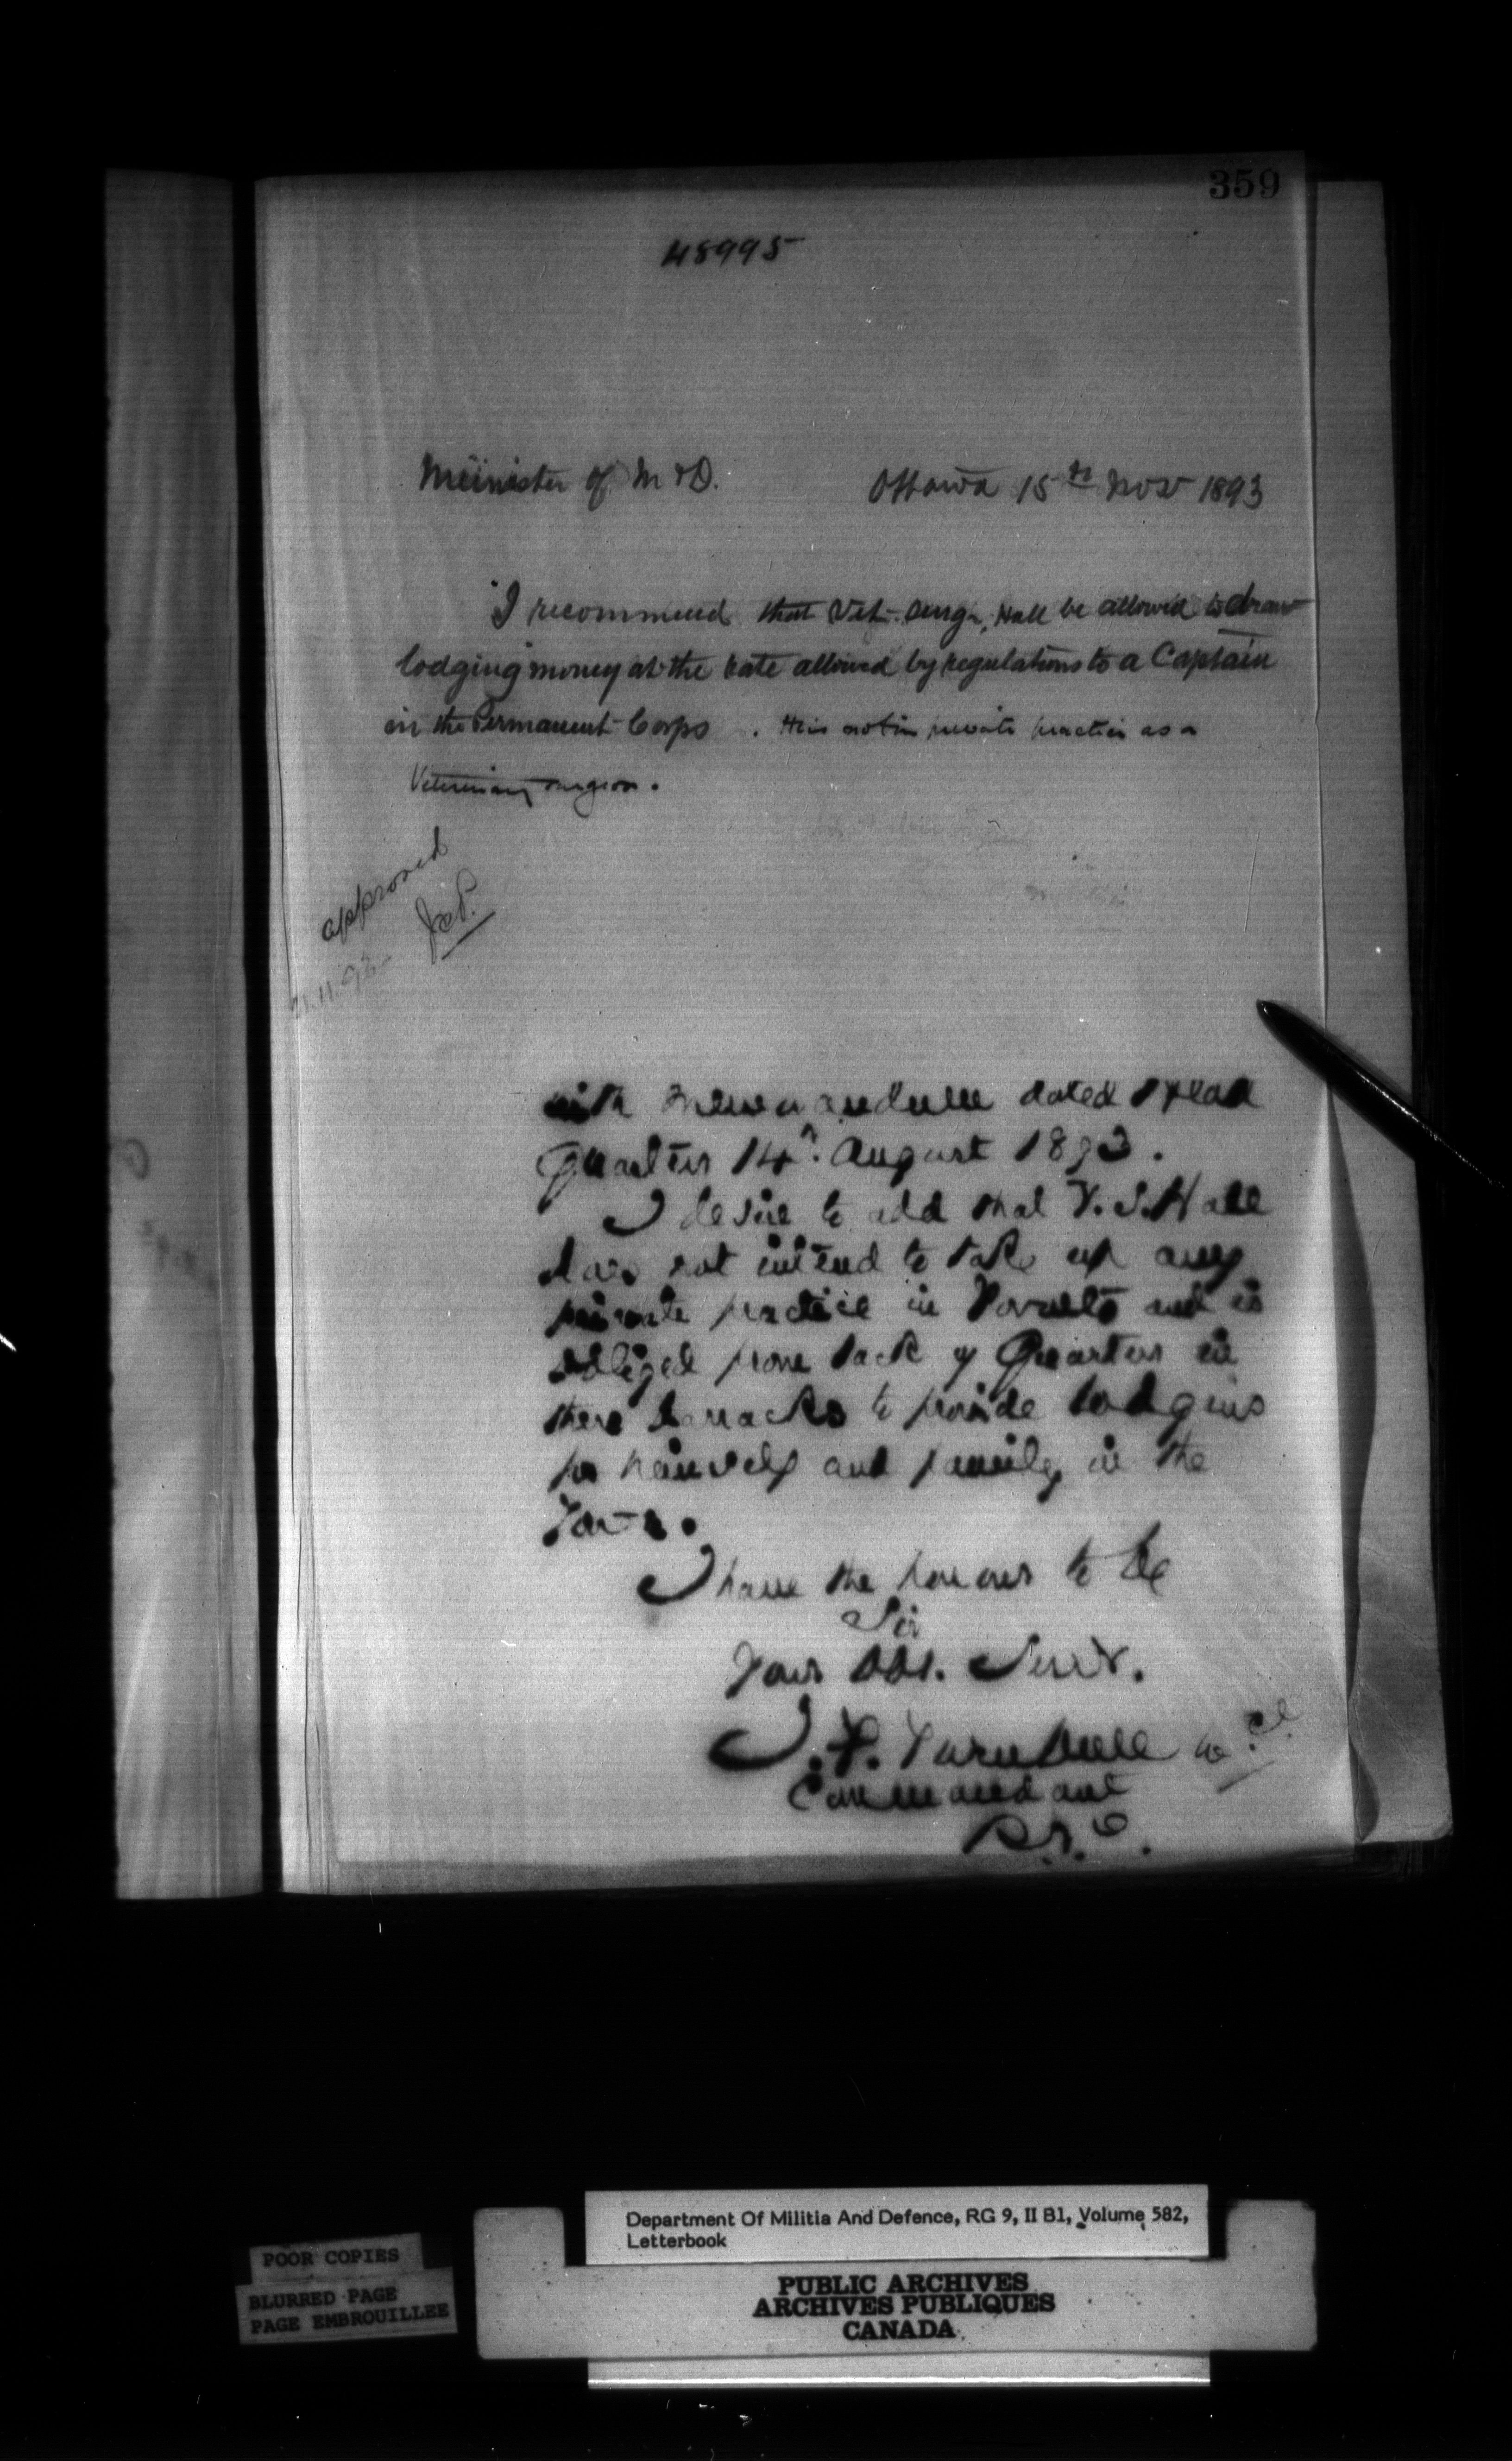 359
48995
Minister of M & D. Ottawa 15th Nov 1893
I recommend that Vet. Surgn. Hall be allowed to draw
lodging money at the rate allowed by regulations to a Captain
in the Permanent Corps. He is not in private practice as a
Veterinary Surgeon.
approved
J.C.P.
21.11.93
with memorandum dated Head
Quarters 14th August 1893.
I desire to add that V. S. Hall
does not intend to take up any
private practice in Toronto and is
obliged from lack of Quarters in
these barracks to provide lodgings
for himself and family in the
Town.
I have the honour to be
Sir
Your Obt. Servt.
J. F. Turnbull Lt. Col.
Commandant
Department Of Militia And Defence, RG 9, II B1, Volume 582,
Letterbook
POOR COPIES
BLURRED PAGE
PAGE EMBROUILLEE
PUBLIC ARCHIVES
ARCHIVES PUBLIQUES
CANADA